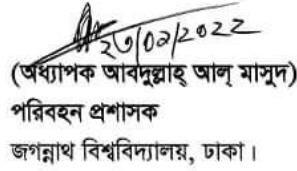 ২৭/০২/২০২২
(অধ্যাপক আবদুল্লাহ্ আল্ মাসুদ)
পরিবহন প্রশাসক
জগন্নাথ বিশ্ববিদ্যালয়, ঢাকা।